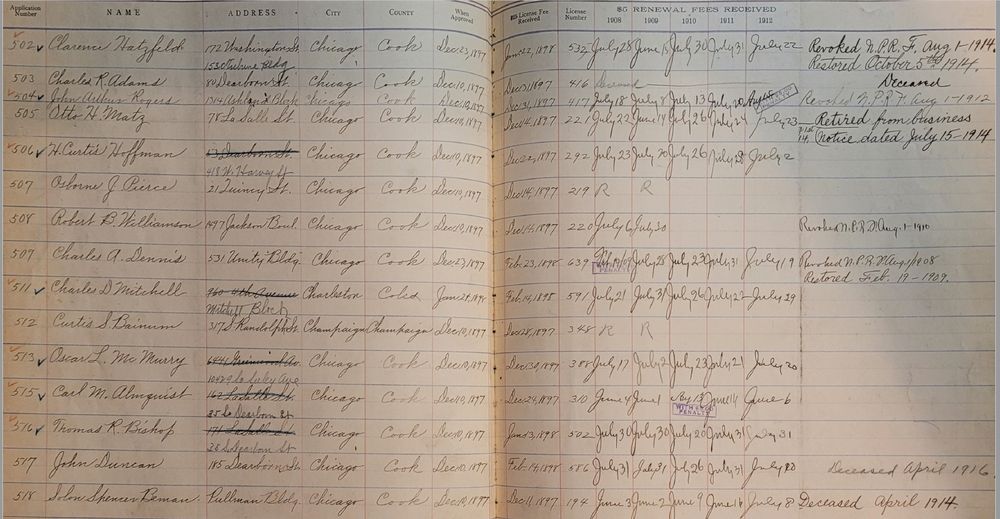 Application Number NAME ADDRESS CITY COUNTY When Approved License Fee Received License Number $5 RENEWAL FEES RECEIVED
1908 1909 1910 1911 1912
502 Clarence Hatzfeld 172 Washington St. Chicago Cook Dec 23, 1897 532 July 28 June 15 July 30 July 31 July 22 Revoked N.P.R.F. Aug 1-1914.
Bldg Restored October 5th 1914.
503 Charles R. Adams Dearborn St. Chicago Cook Dec 10, 1897 416 Deceased Deceased
504 John Arthur Rogers Ashland Block Chicago Cook Dec 31, 1897 417 July 18 July 8 July 13 July 20 Revoked N.P.R.F. Aug 1-1912
505 Otto H. Matz 78 LaSalle St. Chicago Cook Dec 14, 1897 221 July 22 June 14 July 26 July 24 July 23 Retired from business
Notice dated July 15-1914
506 H. Curtis Hoffman Dearborn St. Chicago Cook Dec 10, 1897 Dec 22, 1897 292 July 23 July 20 July 26 July 28 July 2
507 Osborne J. Pierce 21 Quincy St. Chicago Cook Dec 10, 1897 Dec 14, 1897 219 R R
508 Robert B. Williamson 1497 Jackson Boul. Chicago Cook Dec 10, 1897 Dec 14, 1897 220 July 6 July 30 Revoked N.P.R.F. Aug. 1-1910
509 Charles A. Dennis 531 Unity Bldg. Chicago Cook Dec 23, 1897 Feb 23, 1898 639 July 28 July 23 July 31 July 19 Revoked N.P.R.F. Aug 1908
PENALTY Restored Feb. 19-1909.
511 Charles D. Mitchell 760 4th Avenue Charleston Coles Feb 14, 1898 591 July 21 July 31 July 26 July 27 July 29
Mitchell Block
512 Curtis S Bainum 317 S Randolph St. Champaign Champaign Dec 10, 1897 Dec 28, 1897 348 R R
513 Oscar L. McMurry Chicago Cook Dec 10, 1897 Dec 30, 1897 388 July 17 July 2 July 23 July 21 July 20
515 Carl M. Almquist 162 LaSalle St. Chicago Cook Dec 10, 1897 Dec 24, 1897 310 June 4 June 1 June 14 June 6
35 So Dearborn St WITH PENALTY
516 Thomas R. Bishop 171 LaSalle St. Chicago Cook Dec 10, 1897 502 July 30 July 30 July 20 July 31 July 31
35 S Dearborn St
517 John Duncan 185 Dearborn St. Chicago Cook Dec 10, 1897 Feb. 14, 1898 586 July 31 July 31 July 26 July 31 July 20 Deceased April 1916.
518 Solon Spencer Beman Pullman Bldg. Chicago Cook Dec 10, 1897 Dec 11, 1897 194 June 3 June 2 June 9 June 16 July 8 Deceased April 1914.